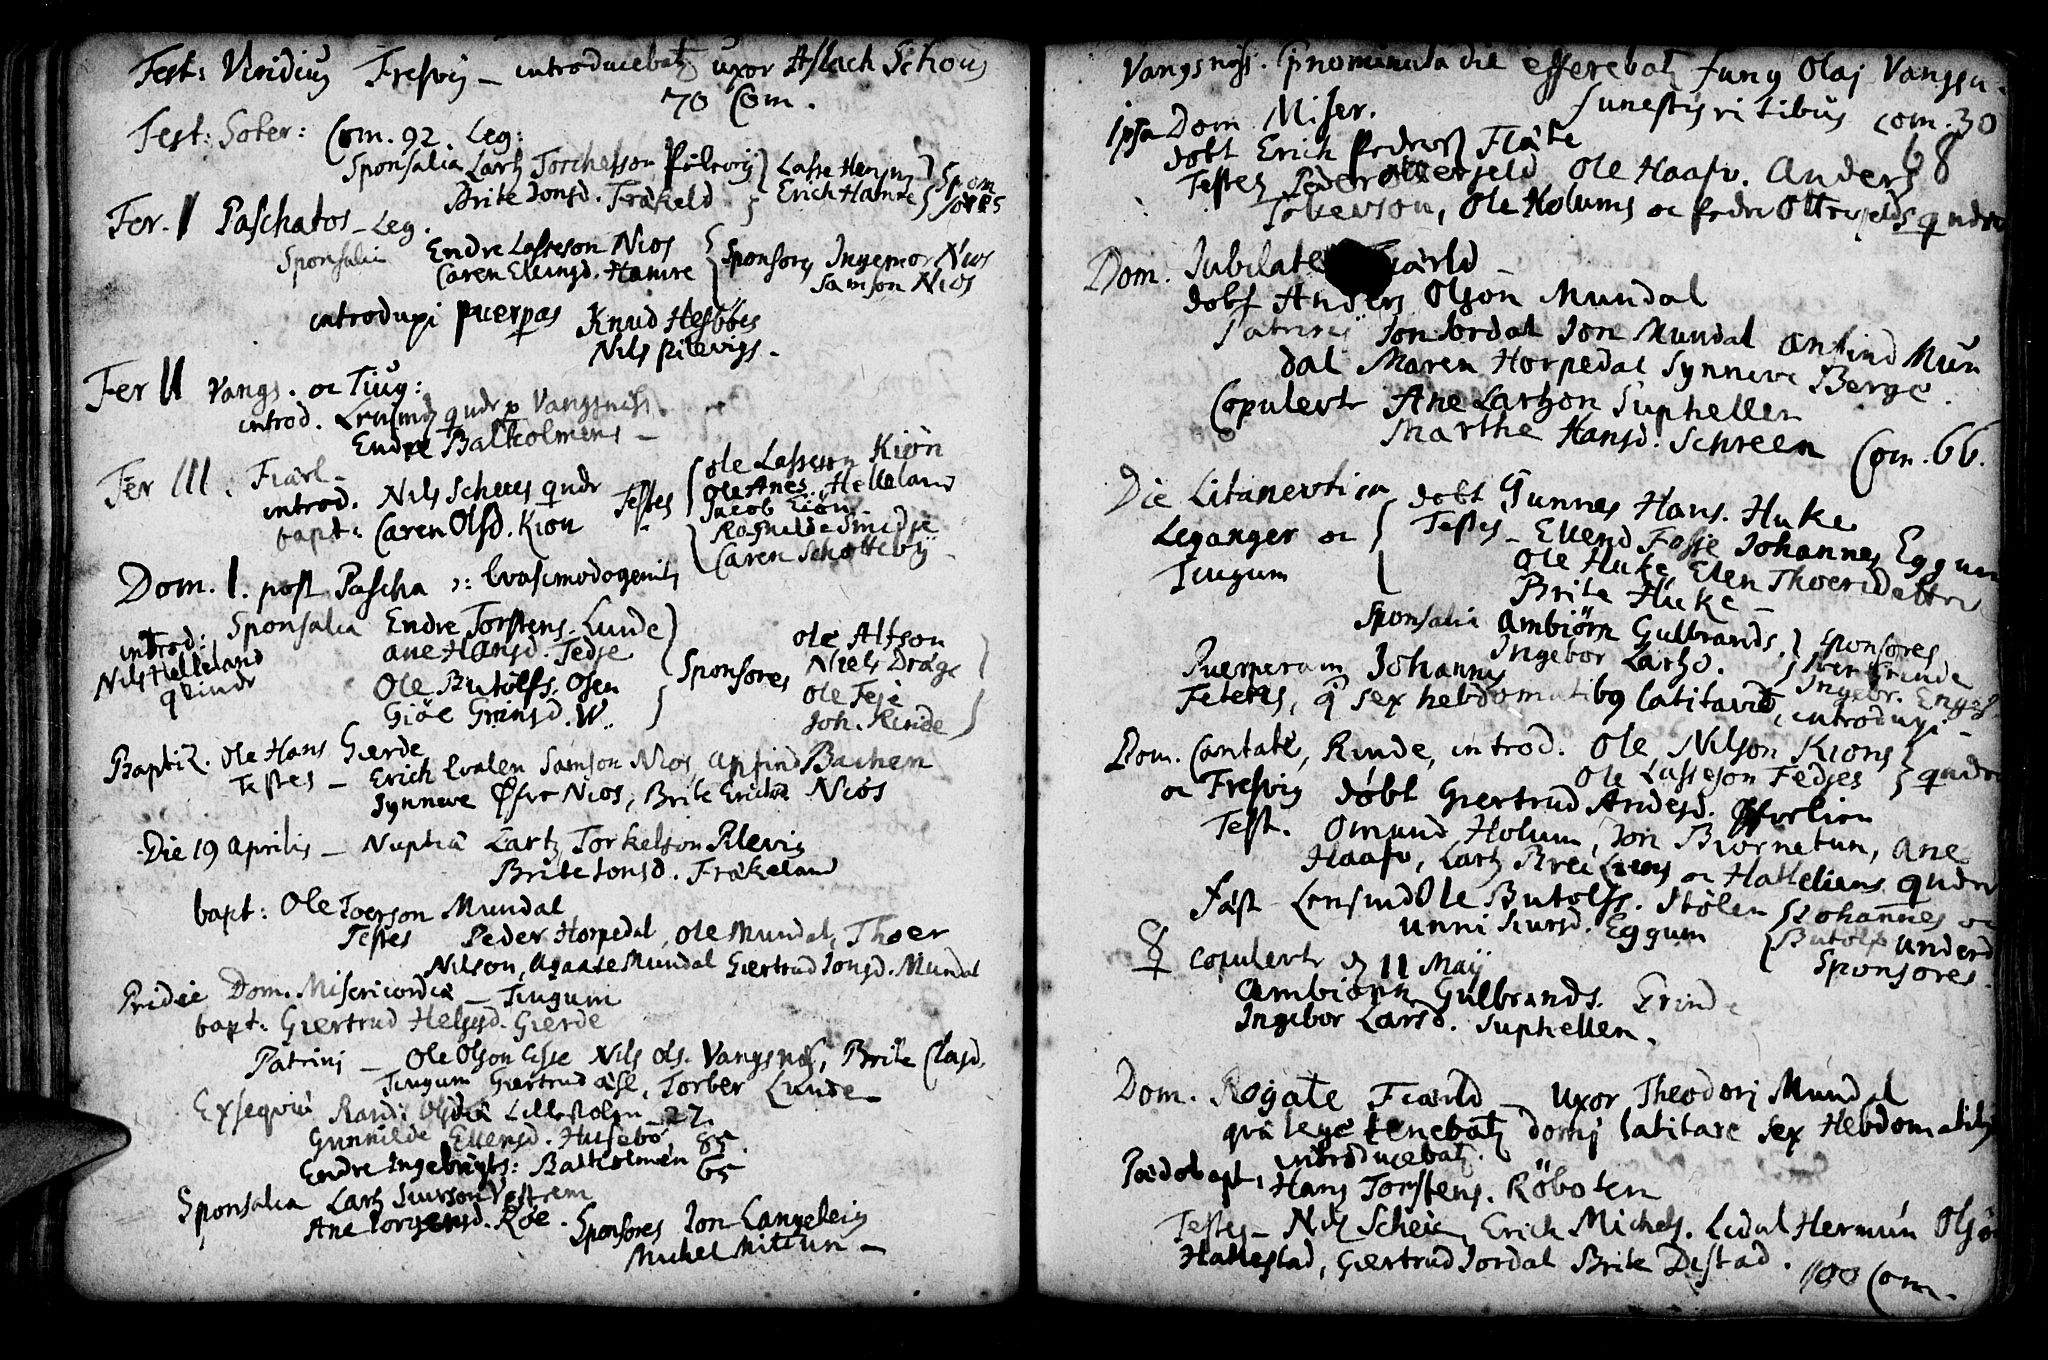 Fest: Viridiũ Fresvig — introducebatz uxor Aslach Schous
70 Com.
Fest: Soter: Com. 92. Leg:
Sponsalia Lartz Torchelsson Pilevig } Lasse Hensn } Spon
Brite Jonsd. Frakeld } Erich Hamre } sores
Fer. II Paschatos — Leg.
Sponsalia Endre Lasseson Nios { Sponsores Ingemor Nios
Caren Ellingd. Hamre Samson Nios
introduxi puerpas Knud Hesbbes
Nils Pilevigs —
Fer II Vangs. oc Tiug:
introd. qndr p Vangsness
Endre Balholmens —
Fer III. Fiarl —
introd. Nils Schees qndr Testes { Ole Lasseson Kion
Ole Anes. Helleland
bapt: Caren Olsd. Kion Jacob Kion
Ragnilde Smedie
Caren Schottebÿ —
Dom. 1. post Pascha ɔ: Qvasimodogeniti
Sponsalia Endre Torstens. Lunde } Ole Alfson }
introd: ane Hansd. Tedje Sponsores Niels Drage
Nils Helleland Ole Butolfs. Osen } Ole Feje
qvindr Giøe Grimsd. W. Joh. Rinde }
Baptiz. Ole Hans Gierde
Testes — Erich Qvalen Samson Nios, Anfind Bachen
Synneve Øfre Nios, Brite Nios
Die 19 Aprilis — Nuptiâ Lartz Torkelson Pilevig
Brite Jonsd. Fråkeland
bapt: Ole Toerson Mundal
Testes Peder Horpedal, Ole Mundal, Thoer
Nilson, Agaate Mundal Giertrud Jonsd. Mundal
Pridie Dom. Misericordiâ — Tiugum
bapt. Giertrud Helgsd. Gierde
Patrini — Ole Olson Esse Nils Ols. Vangsnes, Brite Clasd.
Tiugum Giertrud ase, Torber Lunde —
Exsequiæ Randi Lillestolen — 27.
Gunnilde Ellensd. Husebø 85.
Endre Ingebrigts: Balholmen 65
Sponsalia Lartz Siurson Vestrem
Ane Jorgensd. Røe. Sponsores Jon Langeleig
Michel Nitun —
Vangsnøss. Prænominata die efferebatz funũ Olaj Vangsn.
funestis ritibus com. 30
Ipsa Dom Miser. 68
døbt Erich Pedersz Flåte
Testes Peder Otterjeld Ole Haafv. Anders
Tokerson, Ole Holums oc Pedr Otterjelds qndr
Dom. Iubilate Fiærld —
døbt Anders Olson Mundal
Patrinij Jon Jordal Jon Mundal Anfind Mun
dal Maren Horpedal Synneve Berge.
Copulertr Ane Lartzon Suphellen
Marthe Hansd. Schreen Com. 66.
Die Litanevtica døbt Gunnes Hans. Huke
Leganger oc { Testes — Ellend Fosse Johannes Eggum
Tiugum Ole Huke Elen Thoersdatter
Brite Huke —
Sponsalia Ambiørn Gulbrands. } Sponsores
Ingebor Larsd. } Grinde
Puerperam Johannis Ingebr. Engs.
Feteres, q̃ sex hebdomatibq latitavit, introduxi —
Dom. Cantate, Rinde, introd. Ole Nilson Kions }
Ole Lasseson Fedjes } qndr
oc Fresvig døbt Giertrud Andersd. Øfvelien
Test. Omund Holum, Jon Biornetun, Ane
Haafv, Lartz Breiliens oc Hallelians qndr
Fæst Lensmd Ole Butolfs. Stølen { Johannes oc
Unni Siursd. Eggum Butolf Underd
Sponsores.
☿ copulertr d 11 Maij
Ambiørn Gulbrands. Grinde
Ingebor Larsd. Suphellen.
Dom. Rogate Fiærld — Uxor Theodorj Mundal
qvå lege tenebatz domi latitare sex Hebdomatibq
introducebatz.
Pædobapt. Hans Torstens. Røboten
Testes — Nilz Scheie, Erich Michels. Lidal Hermun Olsøn
Hallestad, Giertrud Jordal Brite Distad.
100 Com.